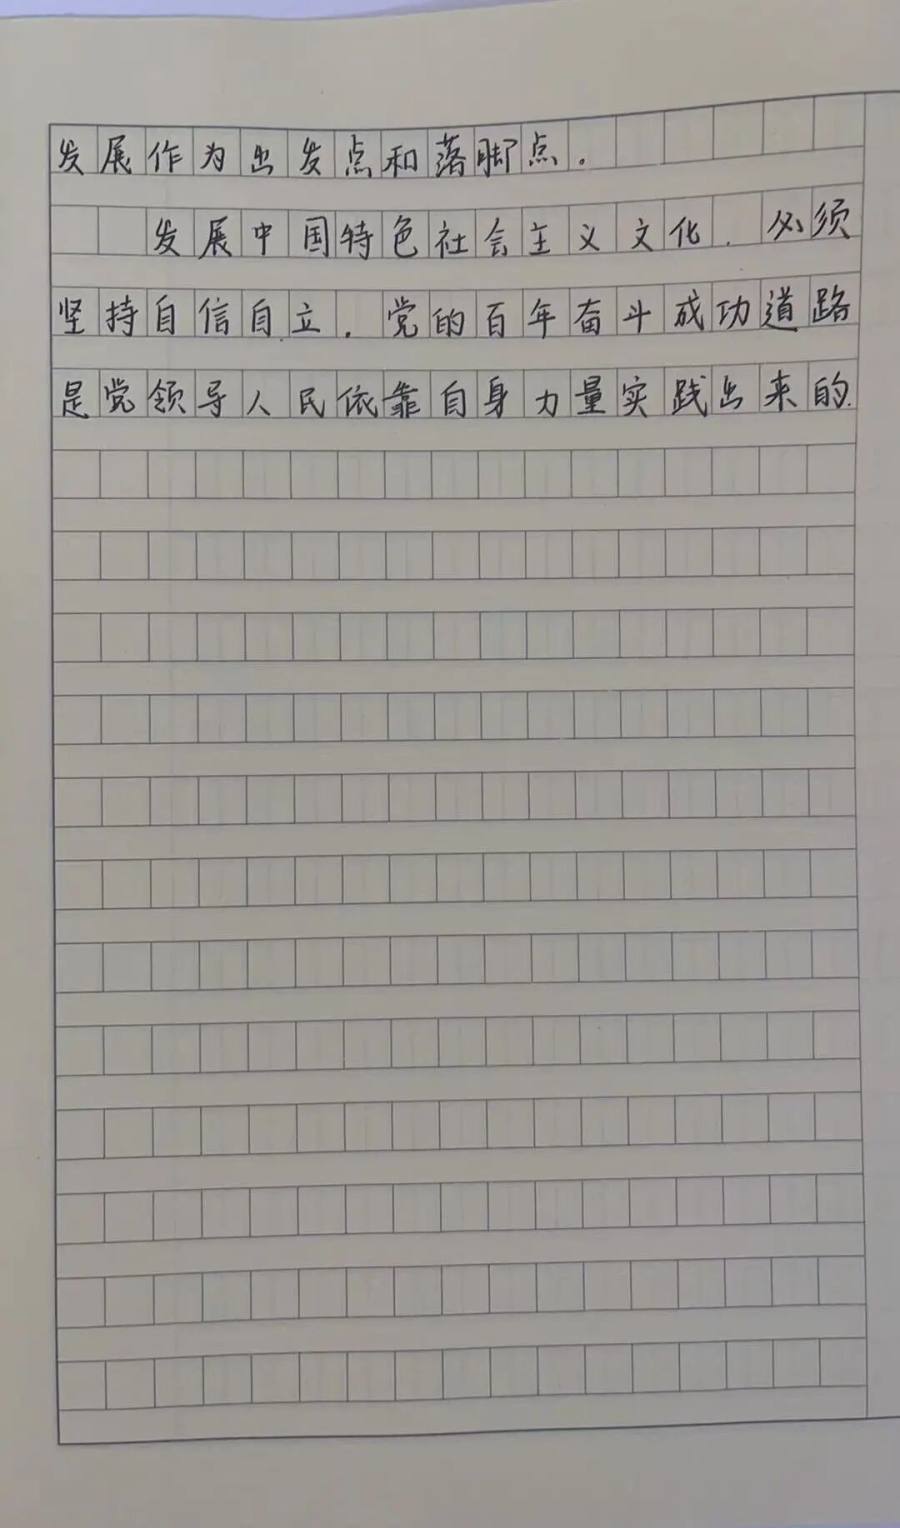 发展作为出发点和落脚点。
发展中国特色社会主义文化，必须
坚持自信自立，党的百年奋斗成功道路
是党领导人民依靠自身力量实践出来的.